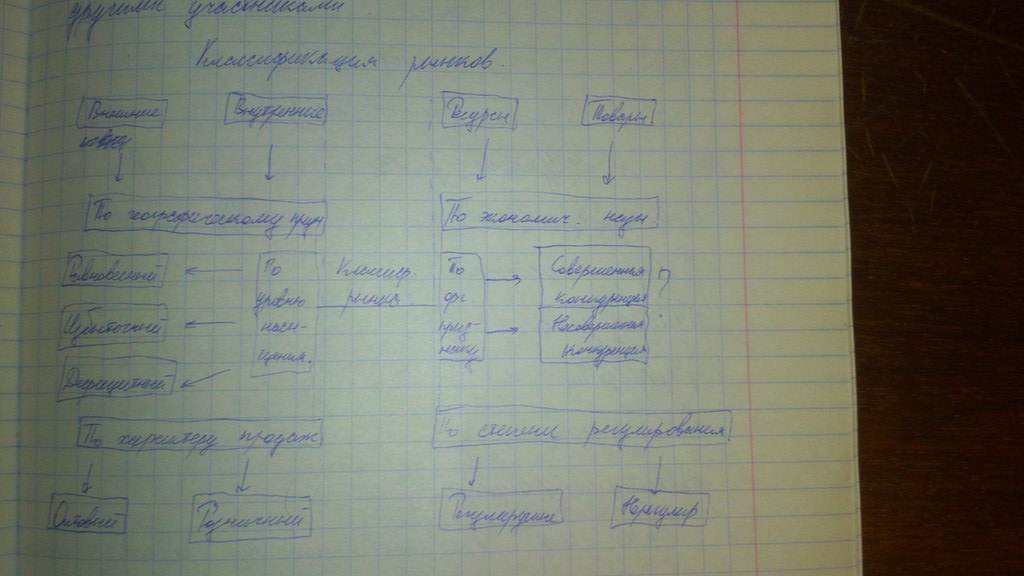 другими участниками.
Классификация рынков.
Внешние Внутренние Ресурсы Товары
По географическому прин По экономич.
Равновесный По Классиф. По Совершенная ?
уровню рынка орг конкуренция
Избыточный насы- приз- Несовершенная
щения. наку конкуренция
Дефицитный
По характеру продаж По степени регулирования
Оптовый Розничный Регулируемые Нерегулир